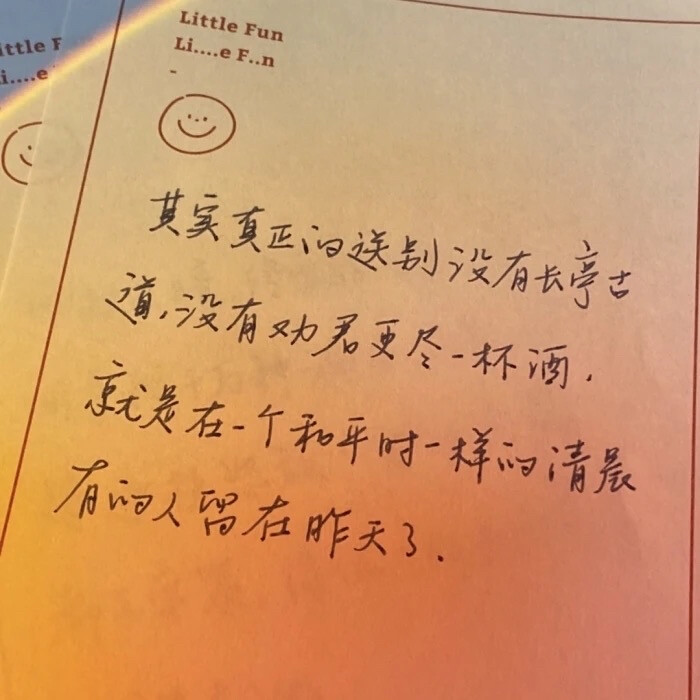 Little Fun
Li....e F..n
-
ittle F
i....e
其实真正的送别没有长亭古
道,没有劝君更尽一杯酒.
就是在一个和平时一样的清晨
有的人留在昨天了.